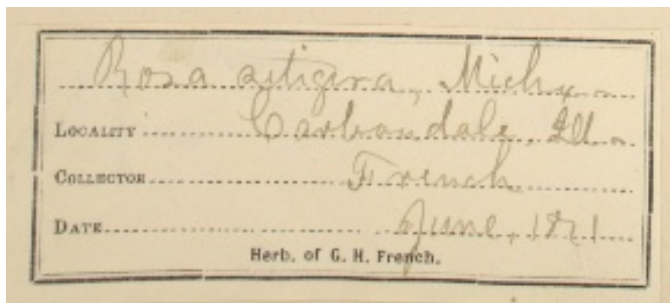 Rosa setigera, Michx.
LOCALITY Carbondale, Ill.
COLLECTOR French
DATE June,
Herb. of G. H. French.